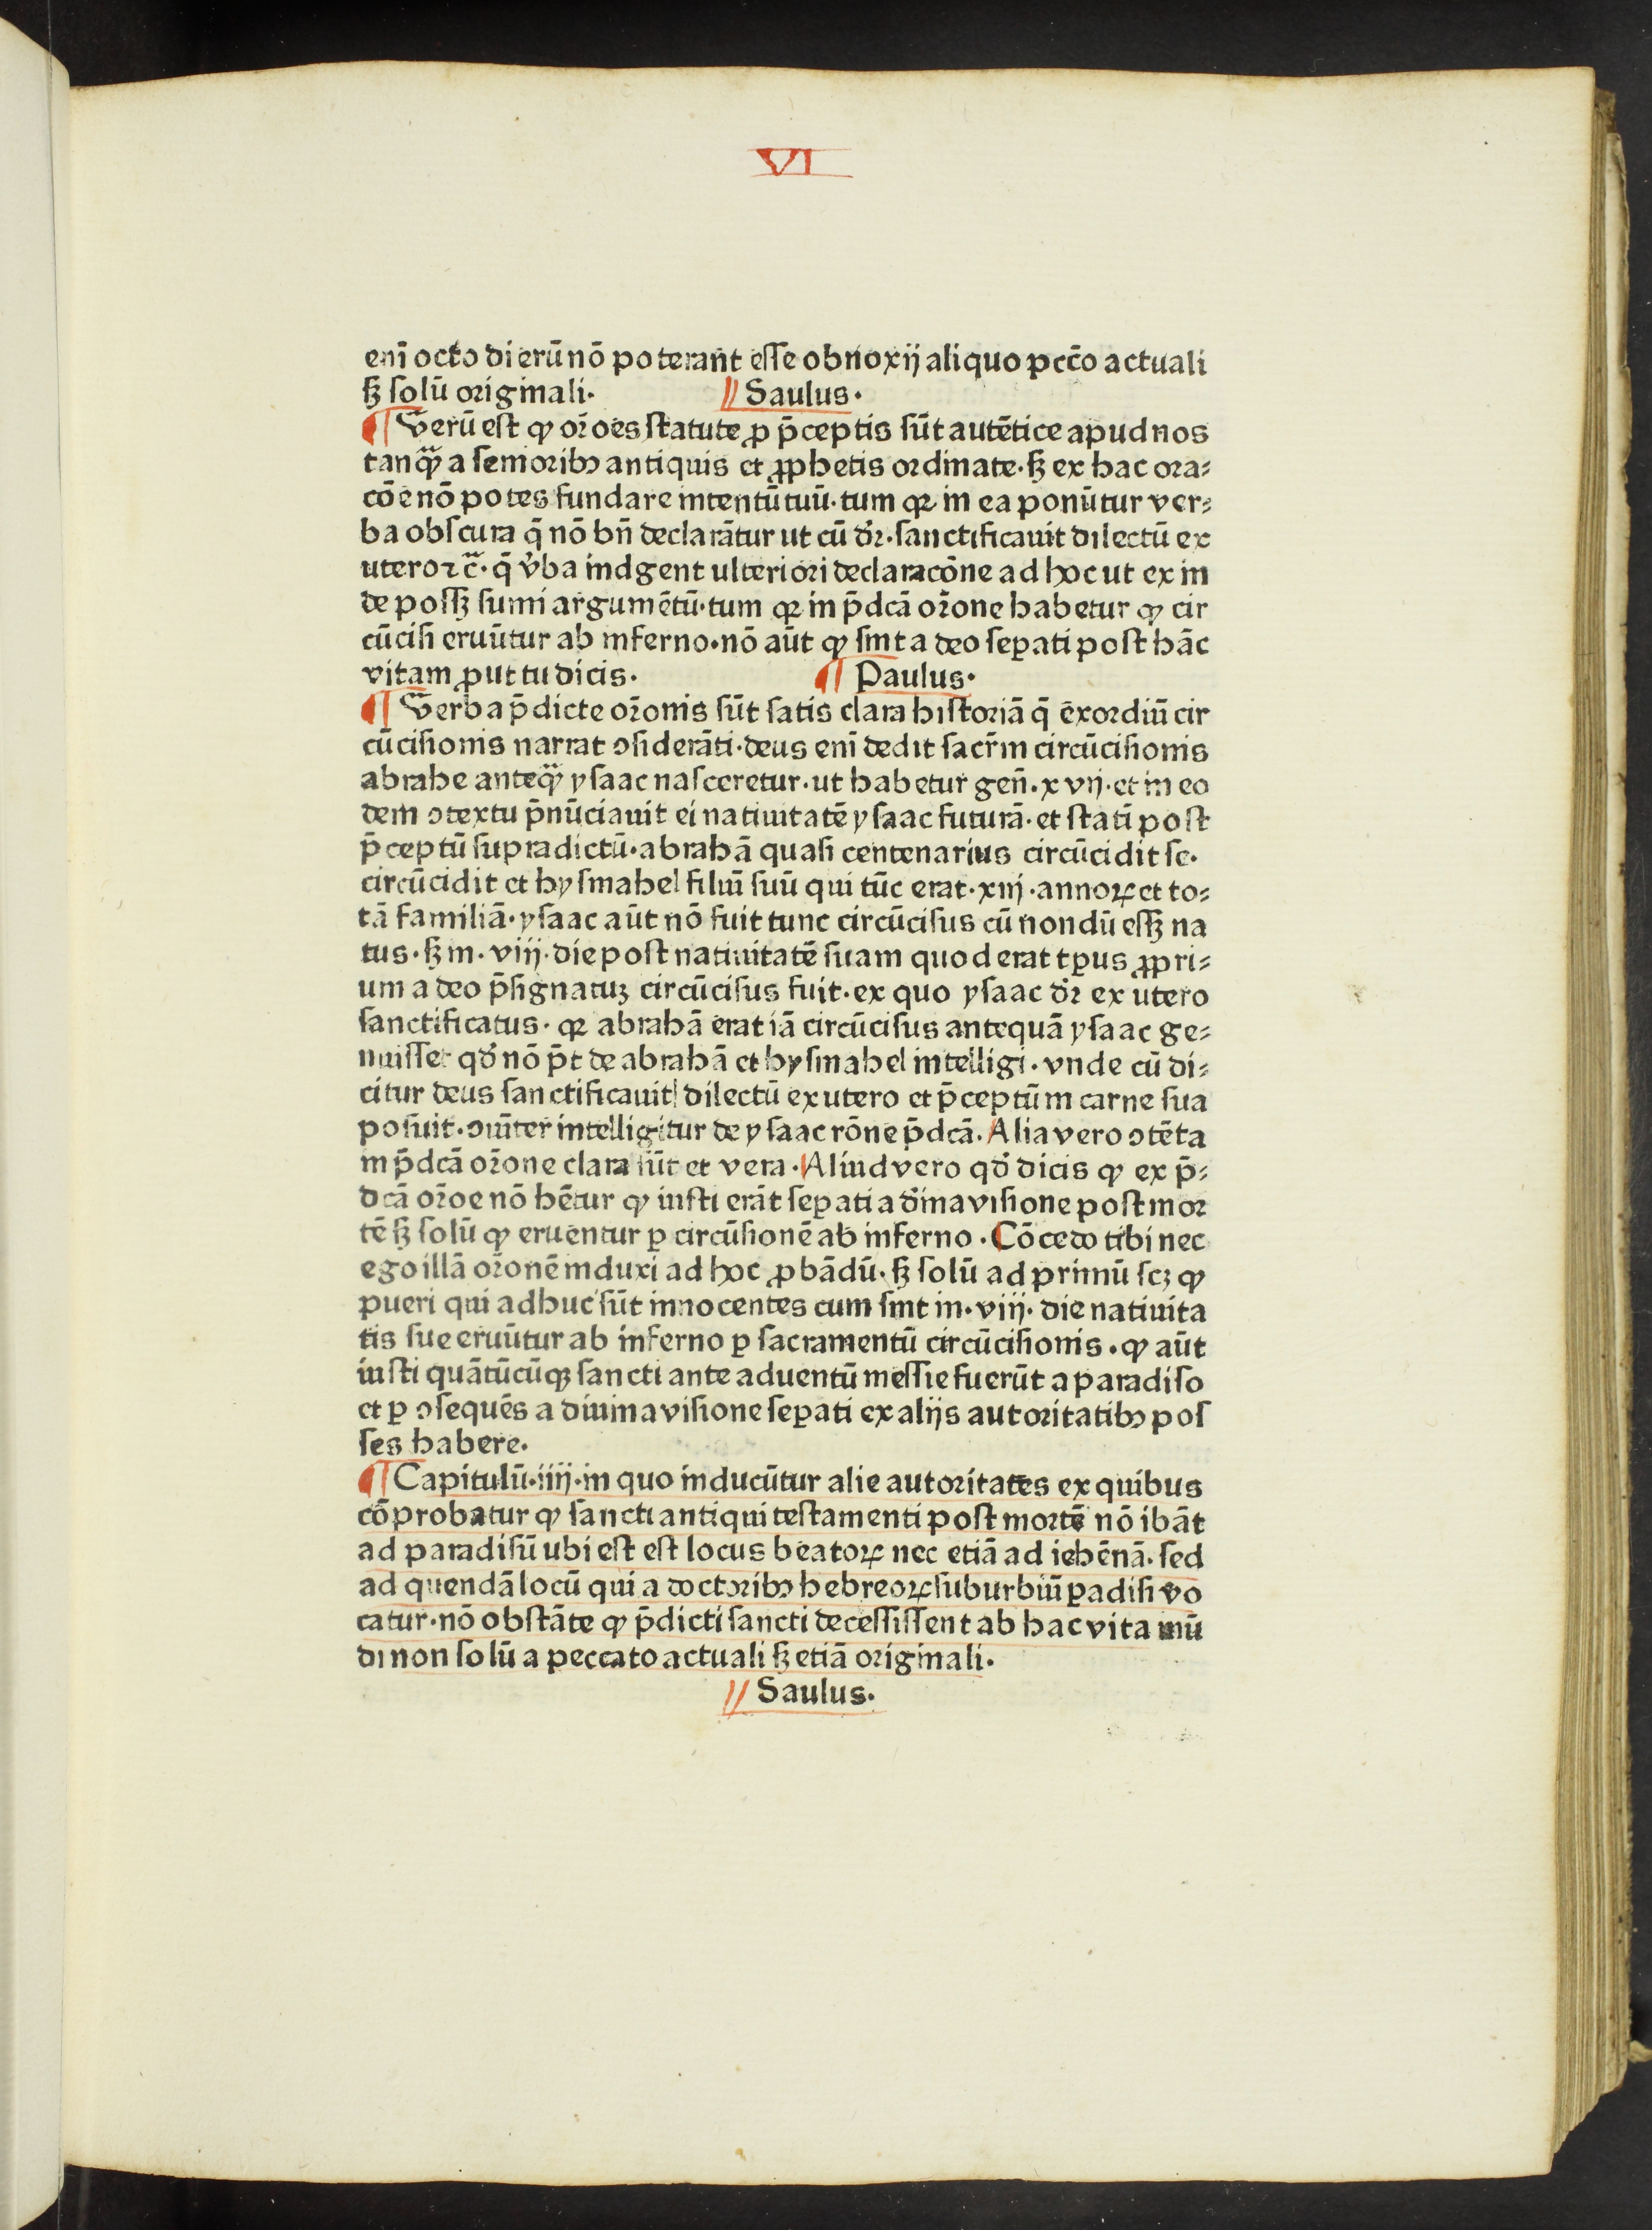 VI
enī octo dierū nō poterant esse obnoxij aliquo pctō actuali
sꝫ solū originali. Saulus.
¶ Verū est ꝙ orōes statute ꝓ p̄ceptis sūt autētice apud nos
tanqᷓ a senioribꝰ antiquis et ꝓphetis ordinate. sꝫ ex hac ora⸗
cōe nō potes fundare intentū tuū. tum qꝛ in ea ponūtur ver⸗
ba obscura q̄ nō bn̄ declarātur ut cū dr̄. sanctificauit dilectū ex
utero ⁊cᷓ. q̄ v̓ba indgent ulteriori declaracōne ad hoc ut ex in
de possꝫ sumi argumētū. tum qꝛ in p̄dcā orōne habetur ꝙ cir
cūcisi eruūtur ab inferno. nō aūt ꝙ sint a deo seꝑati post hāc
vitam ꝓut tu dicis. ¶ Paulus.
¶ Verba p̄dicte orōnis sūt satis clara historiā q̄ exordiū cir
cūcisionis narrat ↄsiderāti. deus enī dedit sacr̄m circūcisionis
abrahe anteqᷓ ysaac nasceretur. ut habetur gen̄. xvij. et in eo
dem ↄtextu p̄nūciauit ei natiuitatē ysaac futurā. et statī post
p̄ceptū supradictū. abrahā quasi centenarius circūcidit se.
circūcidit et hysmahel filiū suū qui tūc erat. xiij. annoꝝ et to⸗
tā familiā. ysaac aūt nō fuit tunc circūcisus cū nondū essꝫ na
tus. sꝫ in. viij. die post natiuitatē suam quod erat tꝑus ꝓpri⸗
um a deo p̄signatuꝫ circūcisus fuit. ex quo ysaac dr̄ ex utero
sanctificatus. qꝛ abrahā erat iā circūcisus antequā ysaac ge⸗
nuisset qd̓ nō p̄t de abrahā et hysmahel intelligi. vnde cū di⸗
citur deus sanctificauit dilectū ex utero et p̄ceptū in carne sua
posuit. ↄuīter intelligitur de ysaac rōne p̄dcā. Alia vero ↄtēta
in p̄dcā orōne clara sūt et vera. Aliud vero qd̓ dicis ꝙ ex p̄⸗
dcā orōe nō hētur ꝙ iusti erāt seꝑati a d̓ina visione post mor
tē sꝫ solū ꝙ eruentur ꝑ circūsionē ab inferno. Cōcedo tibi nec
ego illā orōnē induxi ad hoc ꝓbādū. sꝫ solū ad primū scꝫ ꝙ
pueri qui adhuc sūt innocentes cum sint in. viij. die natiuita
tis sue eruūtur ab inferno ꝑ sacramentū circūcisionis. ꝙ aūt
iusti quātūcūqꝫ sancti ante aduentū messie fuerūt a paradiso
et ꝑ ↄsequēs a diuina visione seꝑati ex alijs autoritatibꝰ pos
ses habere.
¶ Capitulū. iiij. in quo inducūtur alie autoritates ex quibus
cōprobatur ꝙ sancti antiqui testamenti post mortē nō ibāt
ad paradisū ubi est est locus beatoꝝ nec etiā ad iehēnā. sed
ad quendā locū qui a doctoribꝰ hebreoꝝ suburbiū ꝑadisi vo
catur. nō obstāte ꝙ p̄dicti sancti decessissent ab hac vita mū
di non solū a peccato actuali sꝫ etiā originali.
Saulus.